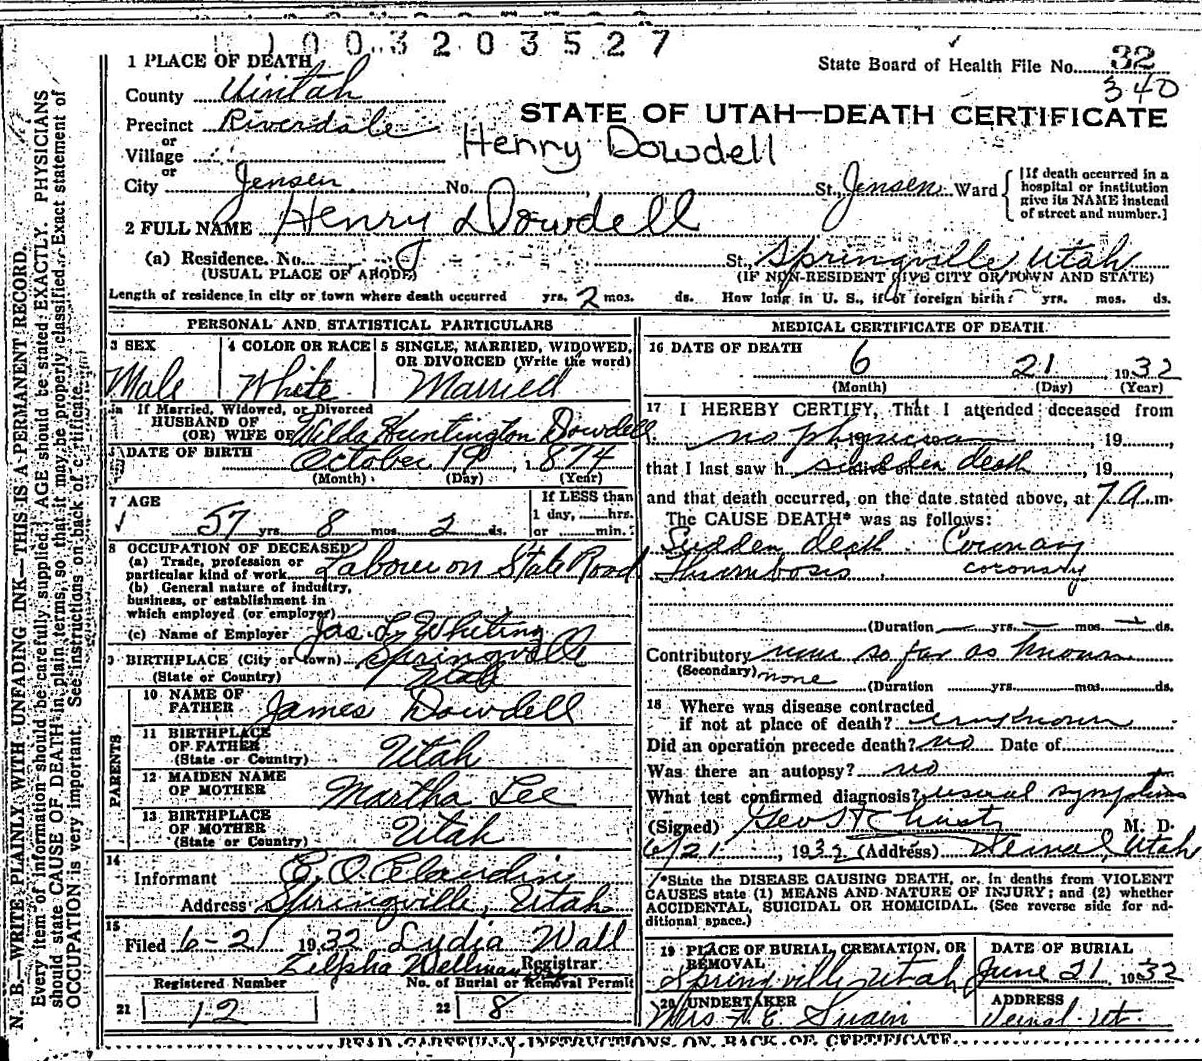 1003203527
1 PLACE OF DEATH
State Board of Health File No. 32
340
County Uintah
STATE OF UTAH—DEATH CERTIFICATE
Precinct Riverdale
or
Henry Dowdell
Village
or
City Jensen No. St., Jensen Ward
[If death occurred in a
hospital or institution
give its NAME instead
of street and number.]
2 FULL NAME Henry Dowdell
(a) Residence. No. St., Springville Utah
(USUAL PLACE OF ABODE) (IF NON-RESIDENT GIVE CITY OR TOWN AND STATE)
Length of residence in city or town where death occurred yrs. 2 mos. ds. How long in U. S., if of foreign birth? yrs. mos. ds.
PERSONAL AND STATISTICAL PARTICULARS
3 SEX
Male
4 COLOR OR RACE
White
5 SINGLE, MARRIED, WIDOWED,
OR DIVORCED (Write the word)
Married
If Married, Widowed, or Divorced
HUSBAND OF
(OR) WIFE OF Wilda Huntington Dowdell
6 DATE OF BIRTH October 19, 1874
(Month) (Day) (Year)
7 AGE
57 yrs. 8 mos. 2 ds.
If LESS than
1 day, hrs.
or min.
8 OCCUPATION OF DECEASED
(a) Trade, profession or
particular kind of work Laborer on State Road
(b) General nature of industry,
business, or establishment in
which employed (or employer)
(c) Name of Employer Jas. L. Whiting
9 BIRTHPLACE (City or town) Springville
(State or Country) Utah
PARENTS
10 NAME OF
FATHER James Dowdell
11 BIRTHPLACE
OF FATHER Utah
(State or Country)
12 MAIDEN NAME
OF MOTHER Martha Lee
13 BIRTHPLACE
OF MOTHER Utah
(State or Country)
14
Informant E. O.
Address Springville, Utah
15
Filed 6-21 1932 Lydia Wall
Zilpha Wellman Registrar
Registered Number No. of Burial or Removal Permit
21 12 22 8
MEDICAL CERTIFICATE OF DEATH
16 DATE OF DEATH 6 21 1932
(Month) (Day) (Year)
17 I HEREBY CERTIFY, That I attended deceased from
no physician 19, 19
that I last saw h sudden death, 19
and that death occurred, on the date stated above, at 7 A. m.
The CAUSE DEATH* was as follows:
Sudden death. Coronary
Thrombosis. coronary
(Duration yrs. mos. ds.
Contributory none so far as known
(Secondary) none
(Duration yrs. mos. ds.
18 Where was disease contracted
if not at place of death? unknown
Did an operation precede death? no Date of
Was there an autopsy? no
What test confirmed diagnosis? usual symptoms
(Signed) Geo M. D.
6/21, 1932 (Address) Vernal, Utah
*State the DISEASE CAUSING DEATH, or, in deaths from VIOLENT
CAUSES state (1) MEANS AND NATURE OF INJURY; and (2) whether
ACCIDENTAL, SUICIDAL OR HOMICIDAL. (See reverse side for ad-
ditional space.)
19 PLACE OF BURIAL, CREMATION, OR
REMOVAL
Springville Utah
DATE OF BURIAL
June 21 1932
20 UNDERTAKER
Mrs. E Swain
ADDRESS
Vernal-Ut
READ CAREFULLY INSTRUCTIONS ON BACK OF CERTIFICATE
N. B.—WRITE PLAINLY WITH UNFADING INK—THIS IS A PERMANENT RECORD.
Every item of information should be carefully supplied. AGE should be stated EXACTLY. PHYSICIANS
should state CAUSE OF DEATH in plain terms, so that it may be properly classified. Exact statement of
OCCUPATION is very important. See instructions on back of certificate.